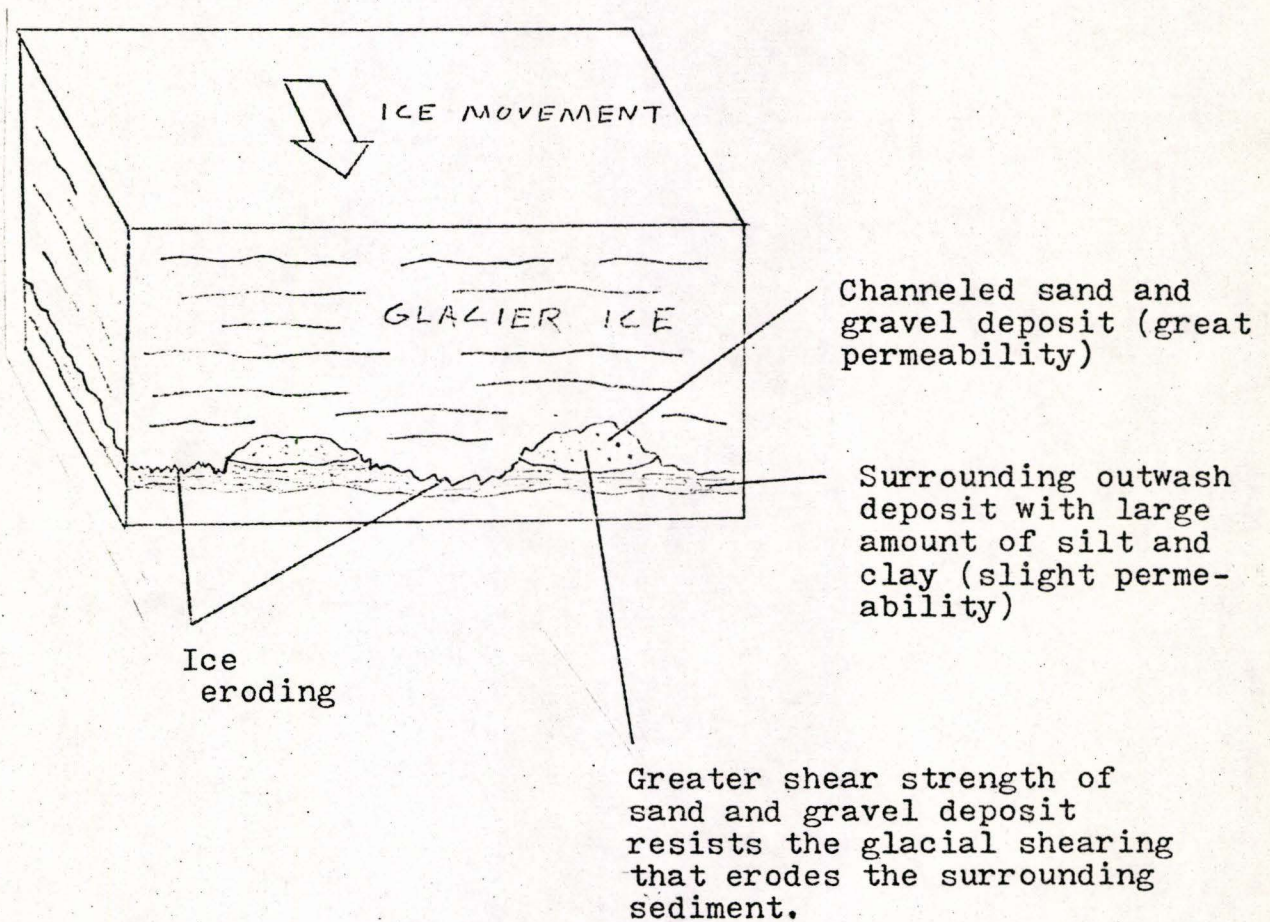 ICE MOVEMENT
GLACIER ICE
Channeled sand and
gravel deposit (great
permeability)
Surrounding outwash
deposit with large
amount of silt and
clay (slight perme-
ability)
Ice
eroding
Greater shear strength of
sand and gravel deposit
resists the glacial shearing
that erodes the surrounding
sediment.